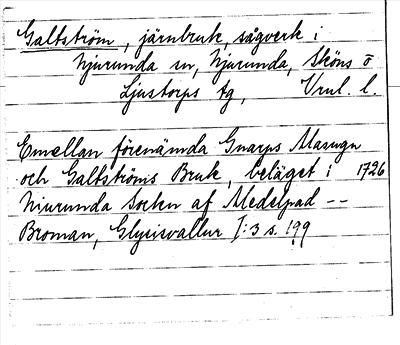 Galtström, järnbruk, sågverk i
Njurunda sn, Njurunda, Sköns o
Ljustorps tg, Vrnl. l.
Emellan förenämda Gnarps Masugn
och Galtströms Bruk, beläget i 1726
Niurunda Socken af Medelpad --
Broman, Glysisvallur I:3 s. 199